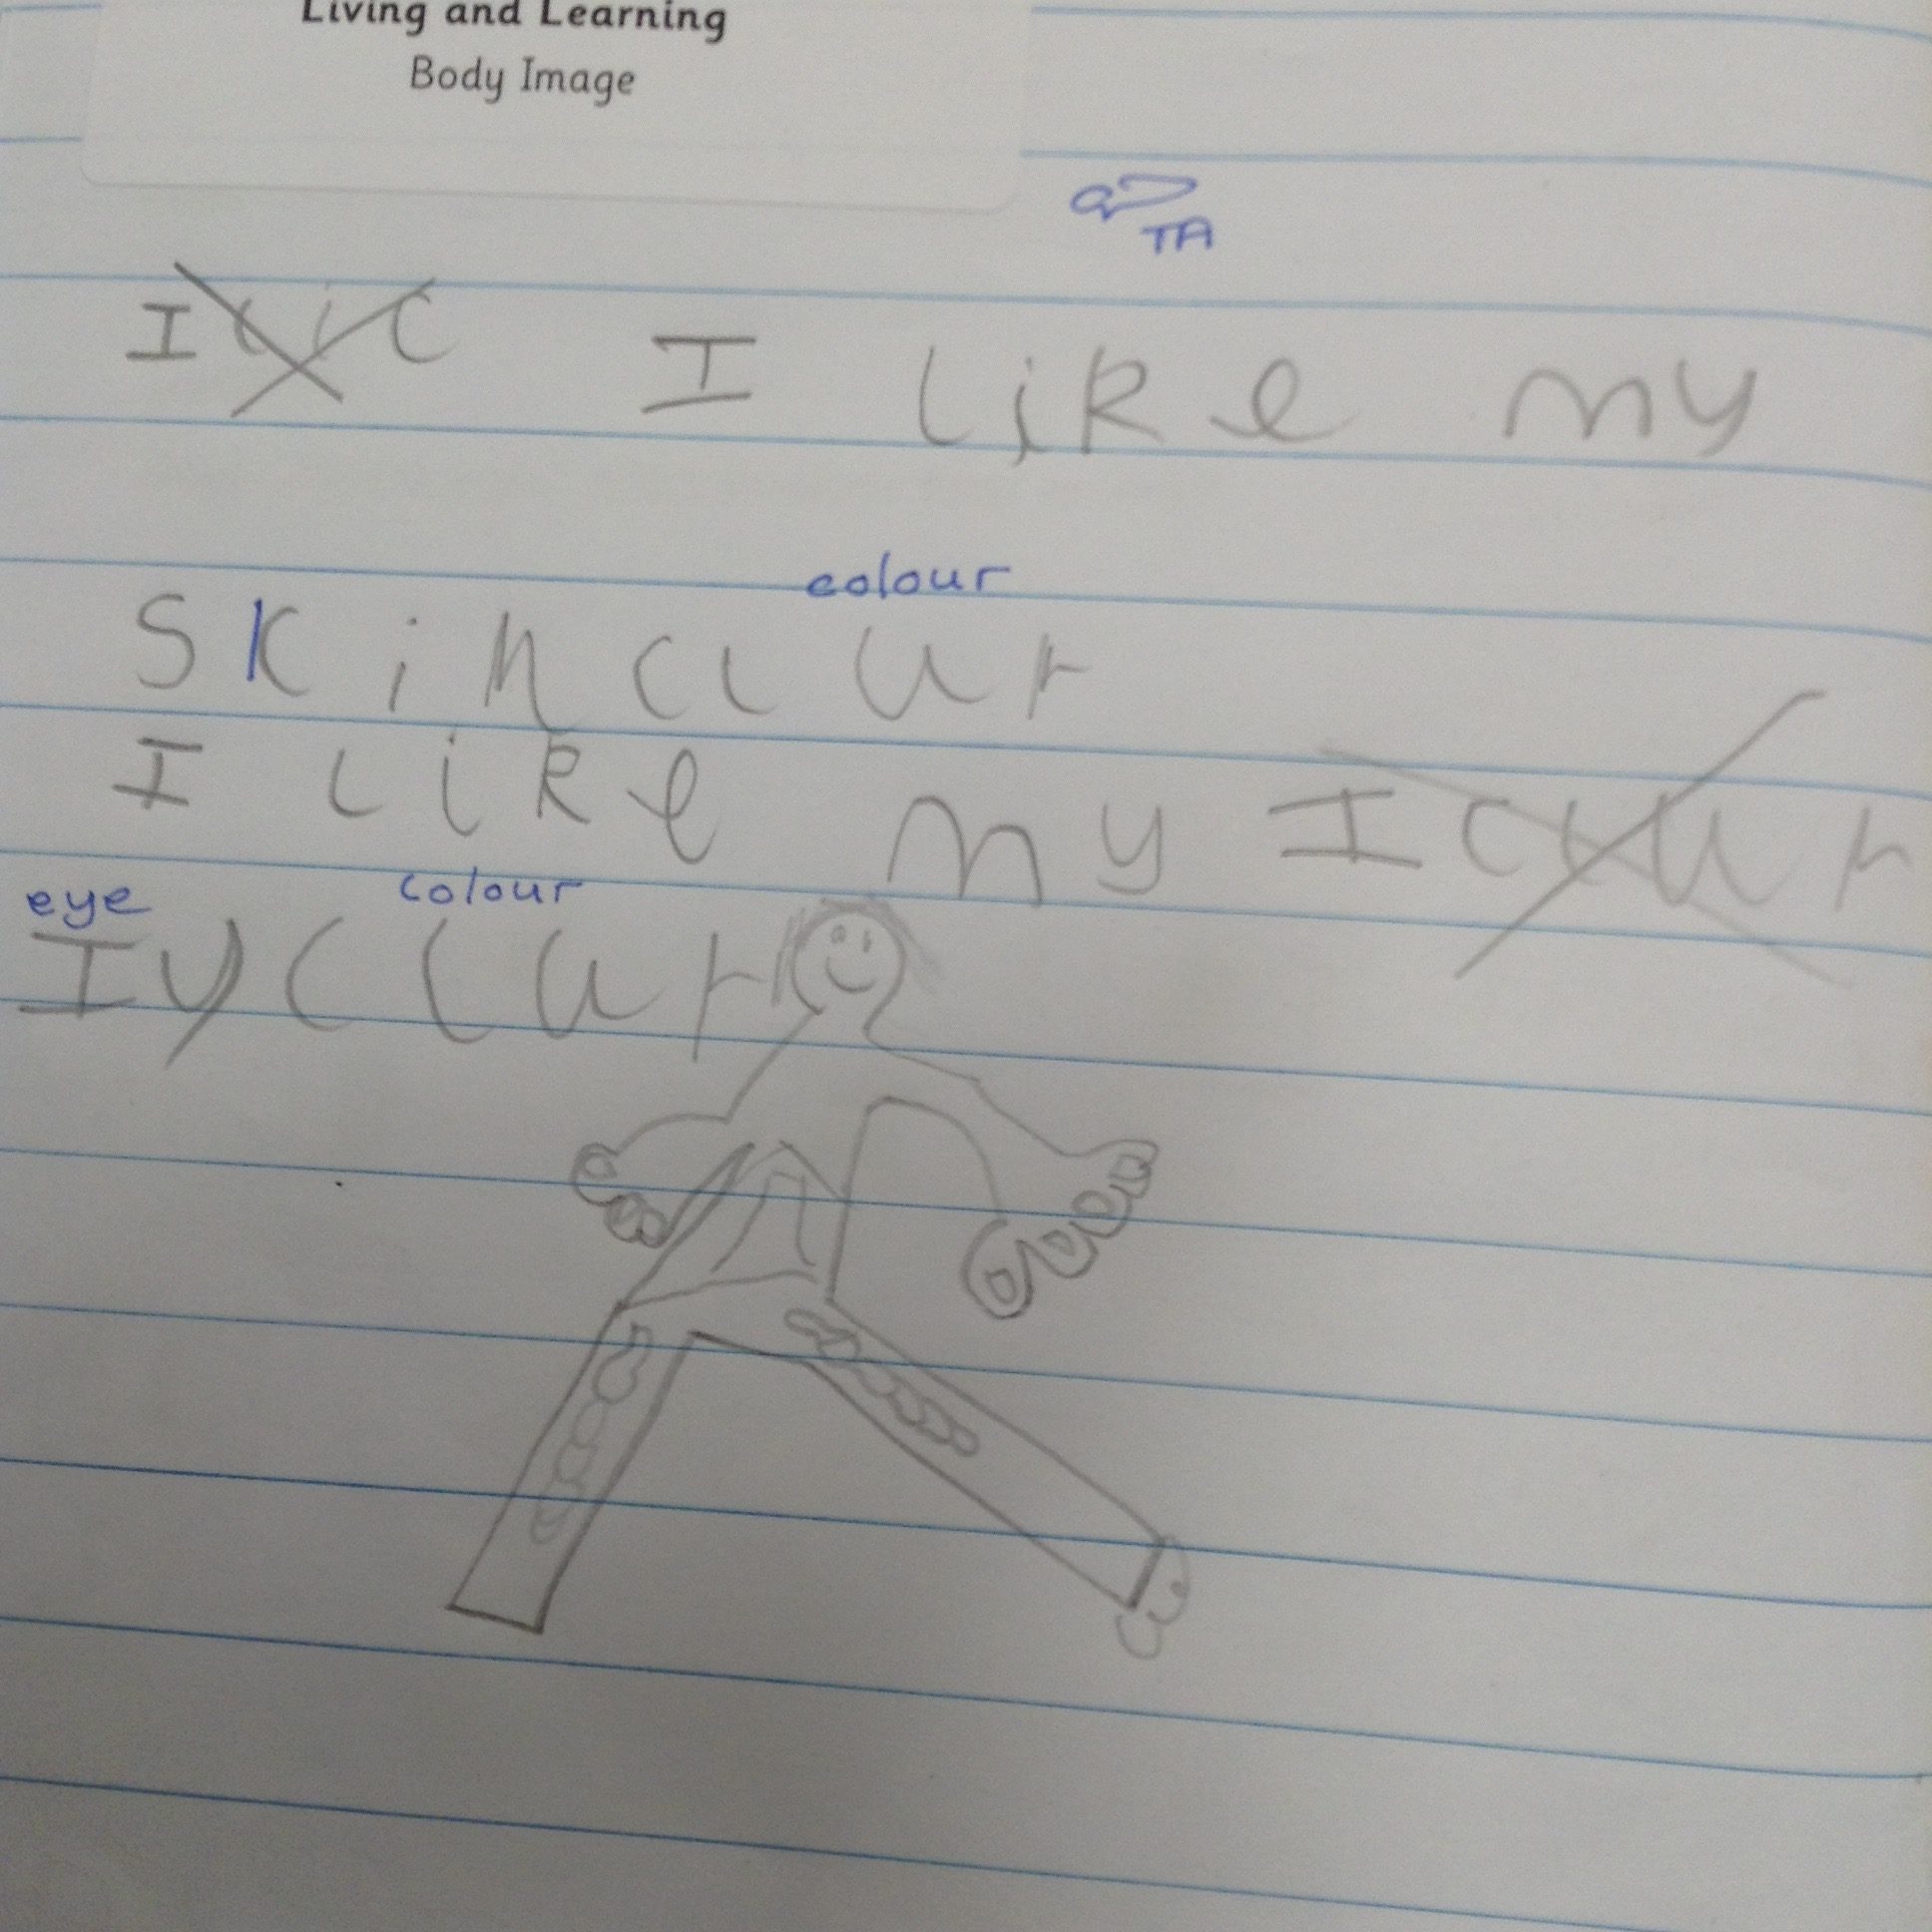 Living and Learning
Body Image
TA
I like my
colour
Skin clur
I like my I clur
eye colour
Iy clur